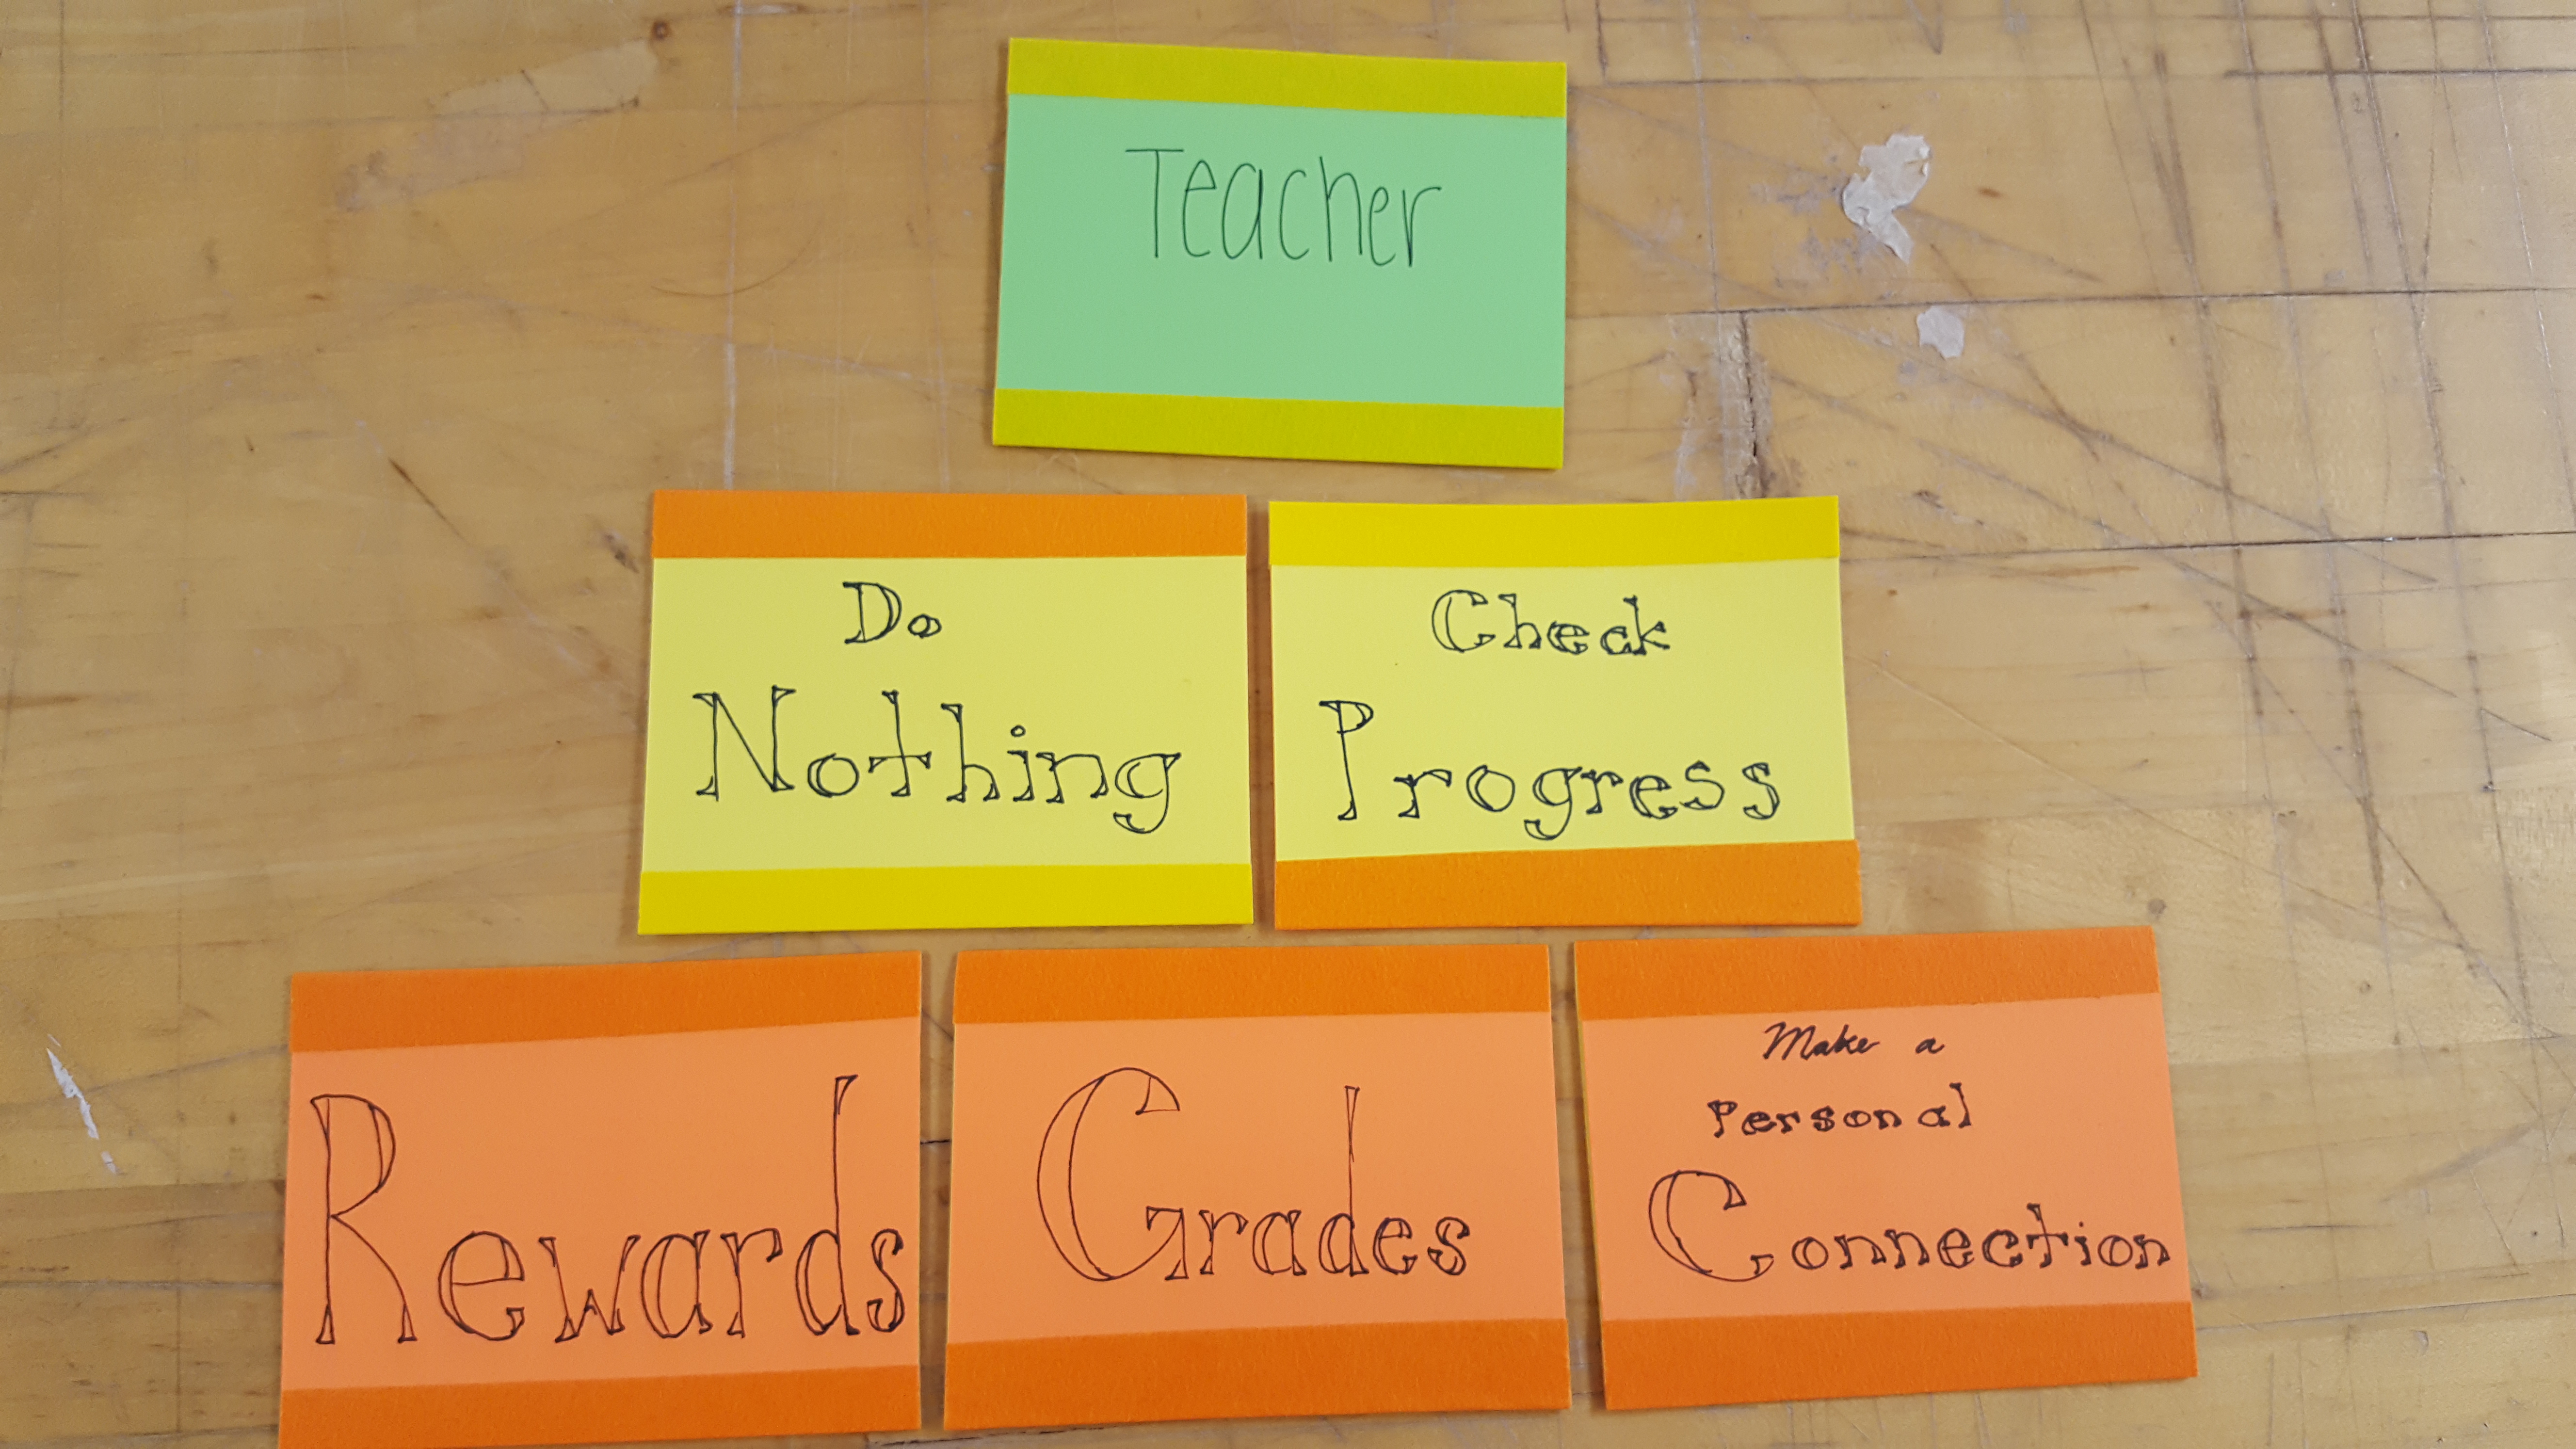 Teacher
Do
Nothing
Check
Progress
Rewards
Grades
Make a
Personal
Connection